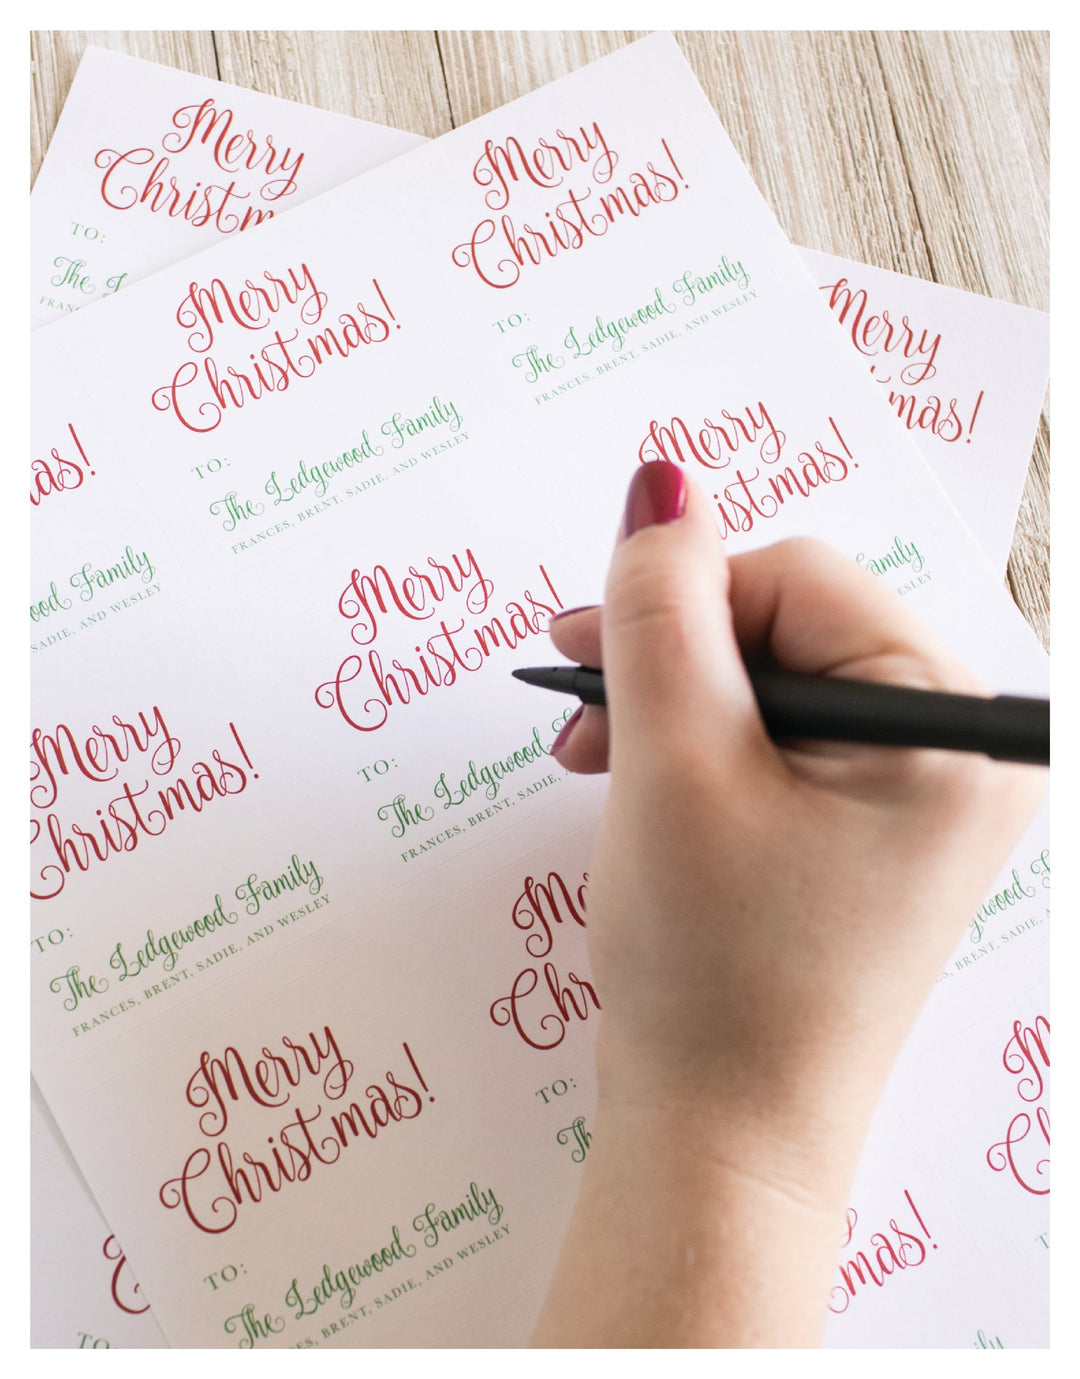 Merry
Christm
TO:
The
FRAN
Merry
Christmas!
TO:
The Ledgewood Family
FRANCES, BRENT, SADIE, AND WESLEY
Merry
Christmas!
TO:
The Ledgewood Family
FRANCES, BRENT, SADIE, AND WESLEY
Merry
mas!
as!
ood Family
SADIE, AND WESLEY
Merry
istmas!
amily
ESLEY
Merry
Christmas!
TO:
The Ledgewood
FRANCES, BRENT, SADIE,
Merry
Christmas!
TO:
The Ledgewood Family
FRANCES, BRENT, SADIE, AND WESLEY
Me
Chr
TO:
Th
gewood
SADIE, AND
Merry
Christmas!
TO:
The Ledgewood Family
FRANCES, BRENT, SADIE, AND WESLEY
M
C
T
mas!
mily
C
TO: